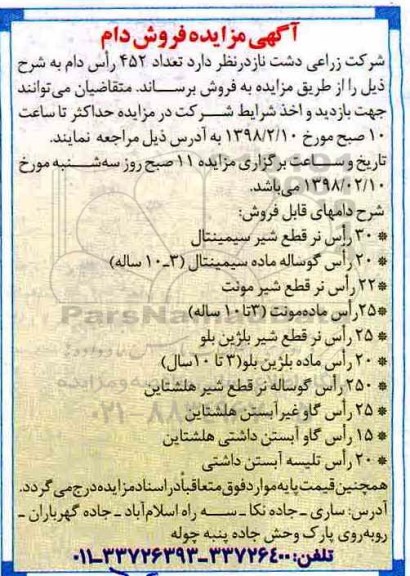 آگهی مزایده فروش دام
شرکت زراعی دشت ناز درنظر دارد تعداد ۴۵۲ رأس دام به شرح
ذیل را از طریق مزایده به فروش برساند. متقاضیان می‌توانند
جهت بازدید و اخذ شرایط شرکت در مزایده حداکثر تا ساعت
۱۰ صبح مورخ ۱۳۹۸/۲/۱۰ به آدرس ذیل مراجعه نمایند.
تاریخ و ساعت برگزاری مزایده ۱۱ صبح روز سه‌شنبه مورخ
۱۳۹۸/۰۲/۱۰ می‌باشد.
شرح دامهای قابل فروش:
* ۳۰ رأس نر قطع شیر سیمینتال
* ۲۰ رأس گوساله ماده سیمینتال (۳-۱۰ ساله)
* ۲۲ رأس نر قطع شیر مونت
* ۲۵ رأس ماده‌مونت (۳تا۱۰ ساله)
ParsNamadData
* ۲۵ رأس نر قطع شیر بلژین بلو
* ۲۰ رأس ماده بلژین بلو(۳ تا ۱۰سال)
* ۲۵۰ رأس گوساله نر قطع شیر هلشتاین
* ۲۵ رأس گاو غیرآبستن هلشتاین
* ۱۵ رأس گاو آبستن داشتی هلشتاین
* ۲۰ رأس تلیسه آبستن داشتی
همچنین قیمت پایه موارد فوق متعاقباً در اسناد مزایده درج می گردد.
آدرس: ساری - جاده نکا - سه راه اسلام‌آباد - جاده گهرباران -
روبه‌روی پارک وحش جاده پنبه چوله
تلفن: ۳۳۷۲۶۴۰۰-۰۱۱-۳۳۷۲۶۳۹۳